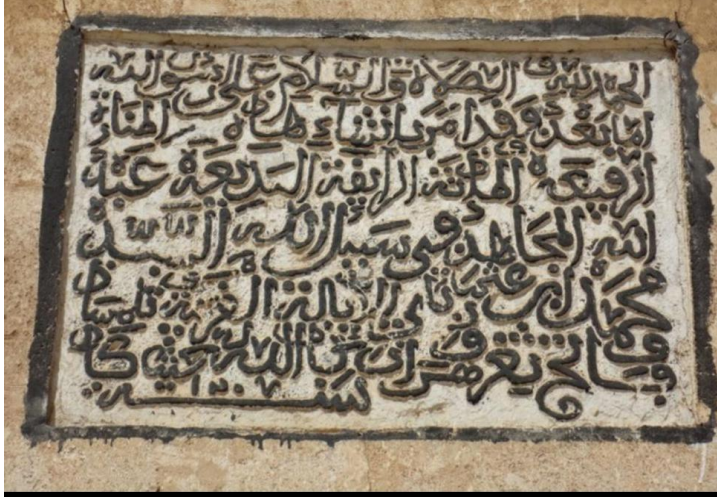 الحمد لله والصلاة والسلام على رسول الله
اما بعد فقد امر بانشاء هاذه المنارة
الرفيعة الرايقة البديعة عبد
الله المجاهد في سبيل الله السيد
محمد ابن عثمان باي الايالة الغربية تلمسان
وفاتح ثغر وهران الله
سنة